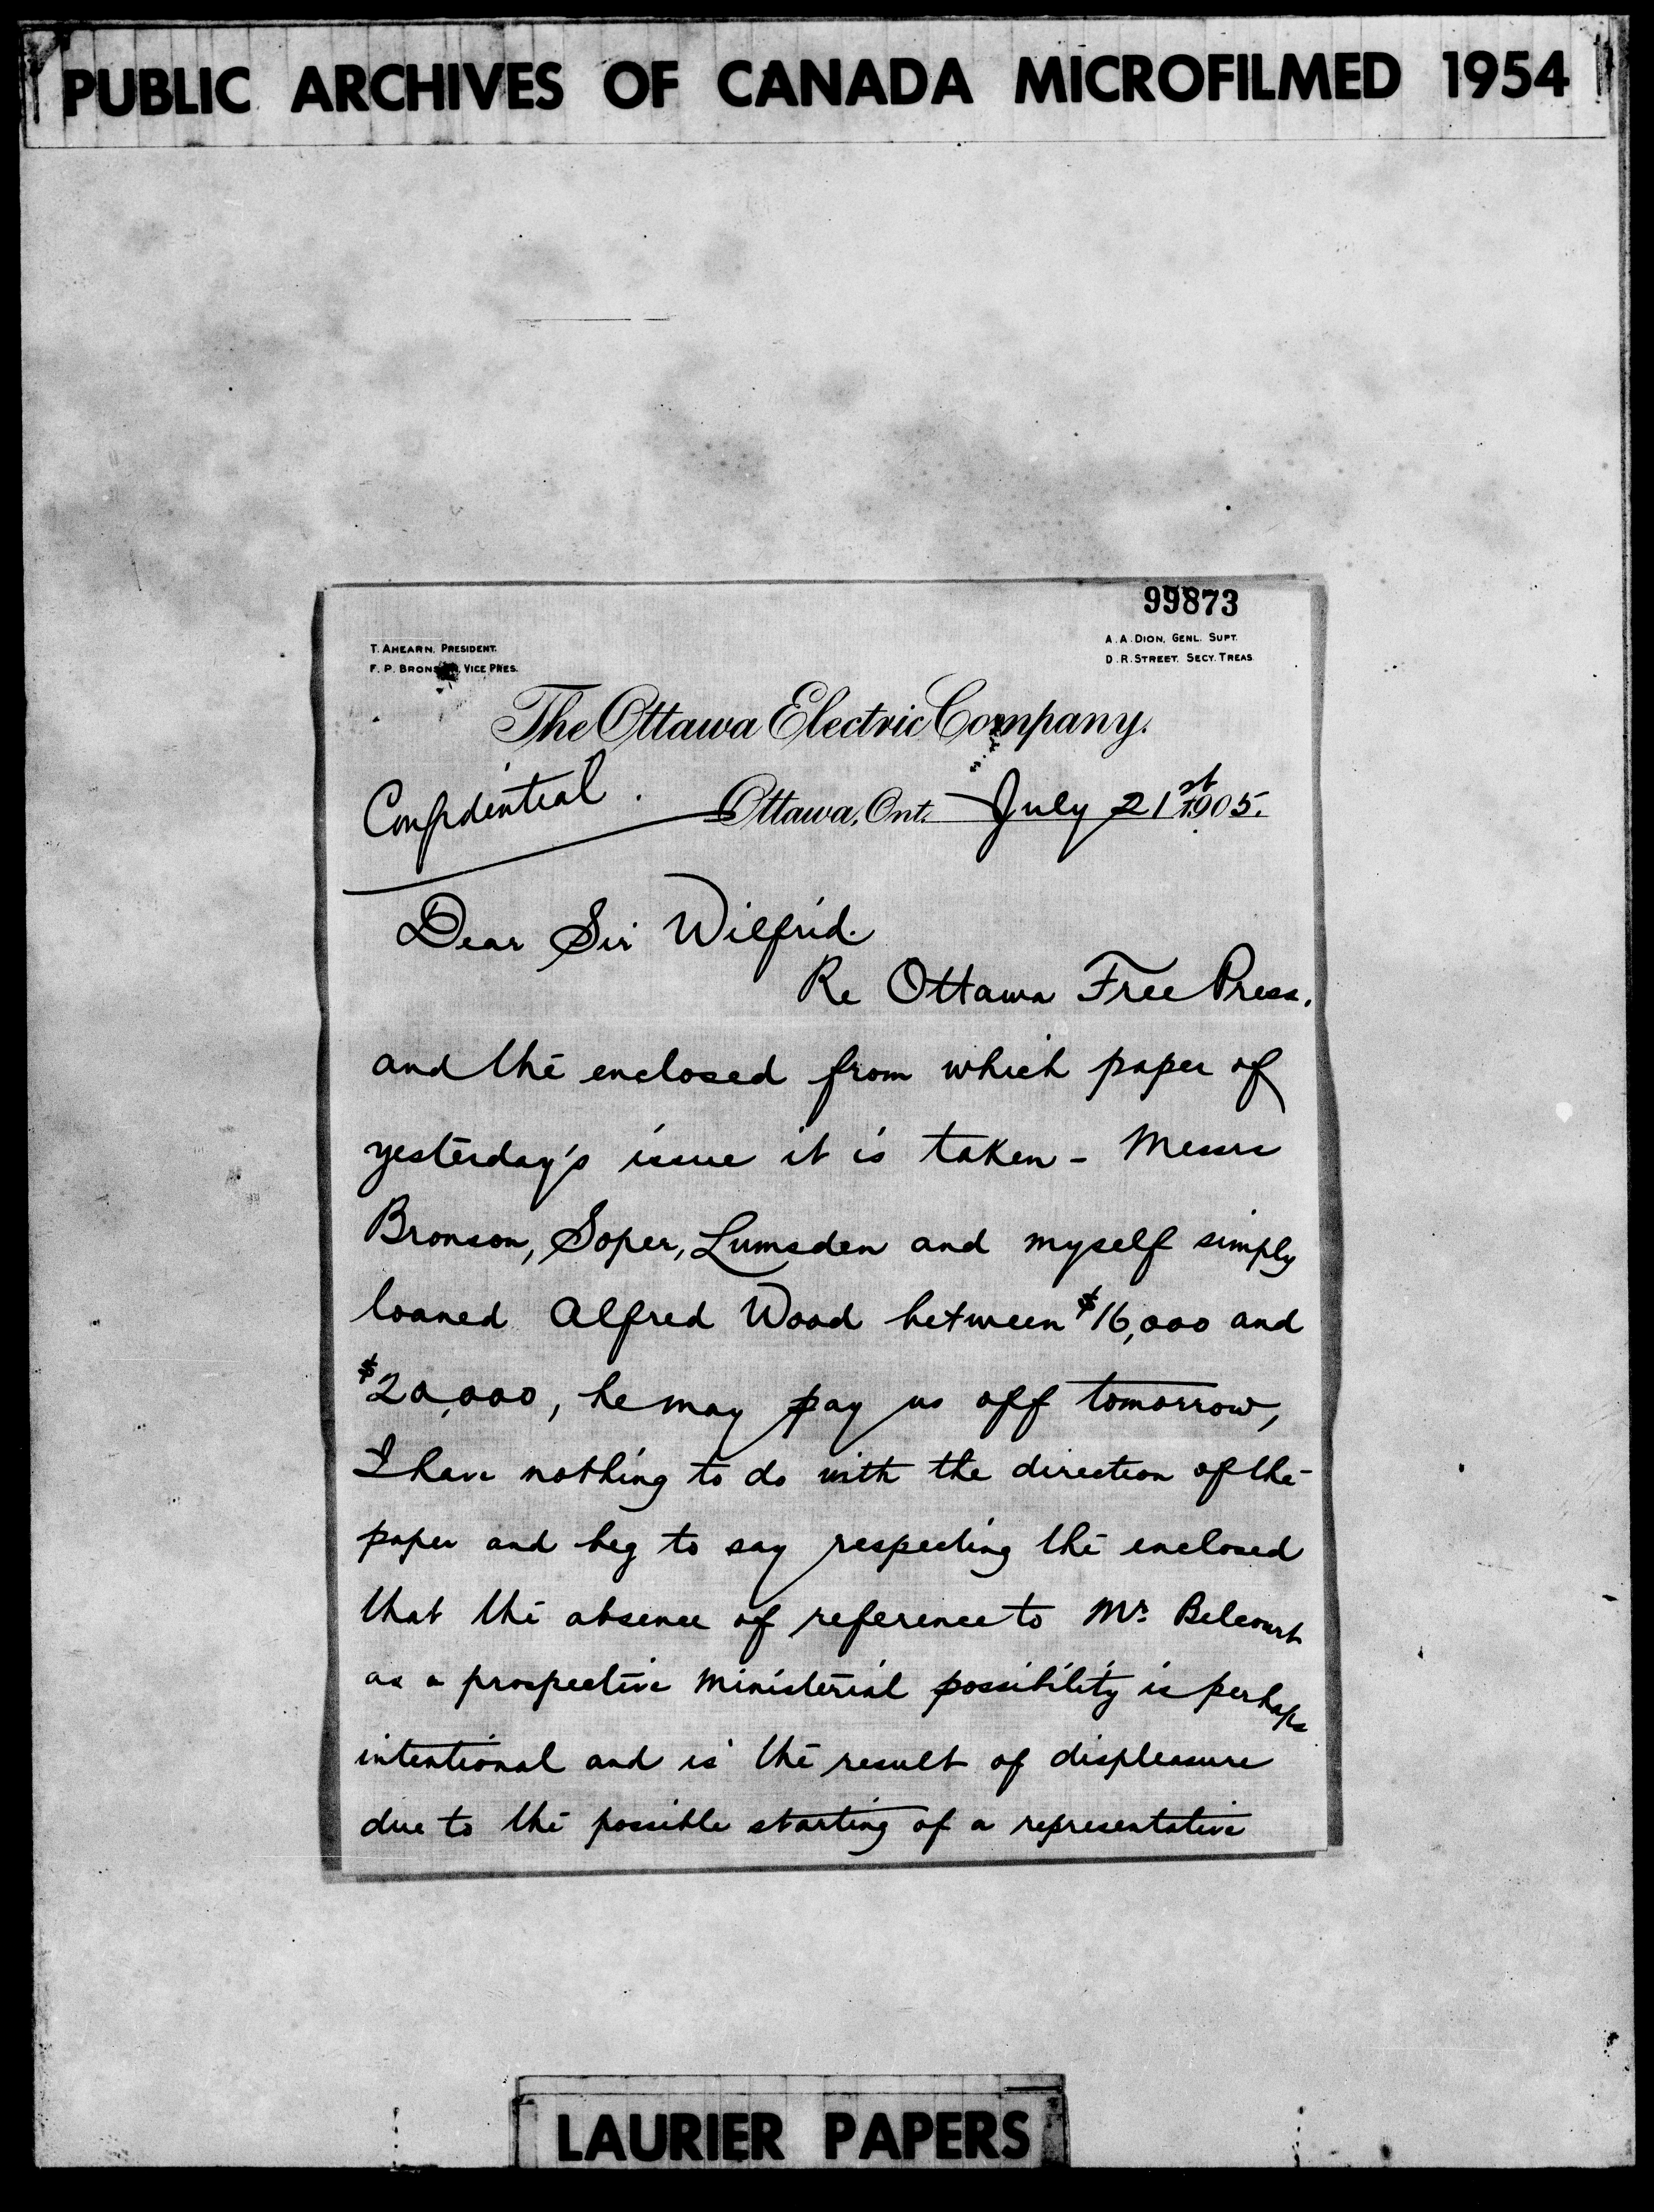 PUBLIC ARCHIVES OF CANADA MICROFILMED 1954
99873
T. AHEARN, PRESIDENT.
F. P. BRONSON, VICE PRES.
A. A. DION, GENL. SUPT.
D. R. STREET, SECY. TREAS.
The Ottawa Electric Company.
Confidential.
Ottawa, Ont. July 21st 1905.
Dear Sir Wilfrid.
Re Ottawa Free Press.
and the enclosed from which paper of
yesterday's issue it is taken - Messrs
Bronson, Soper, Lumsden and myself simply
loaned Alfred Wood between $16,000 and
$20,000, he may pay us off tomorrow,
I have nothing to do with the direction of the
paper and beg to say respecting the enclosed
that the absence of reference to Mr. Belcourt
as a prospective Ministerial possibility is perhaps
intentional and is the result of displeasure
due to the possible starting of a representative
LAURIER PAPERS